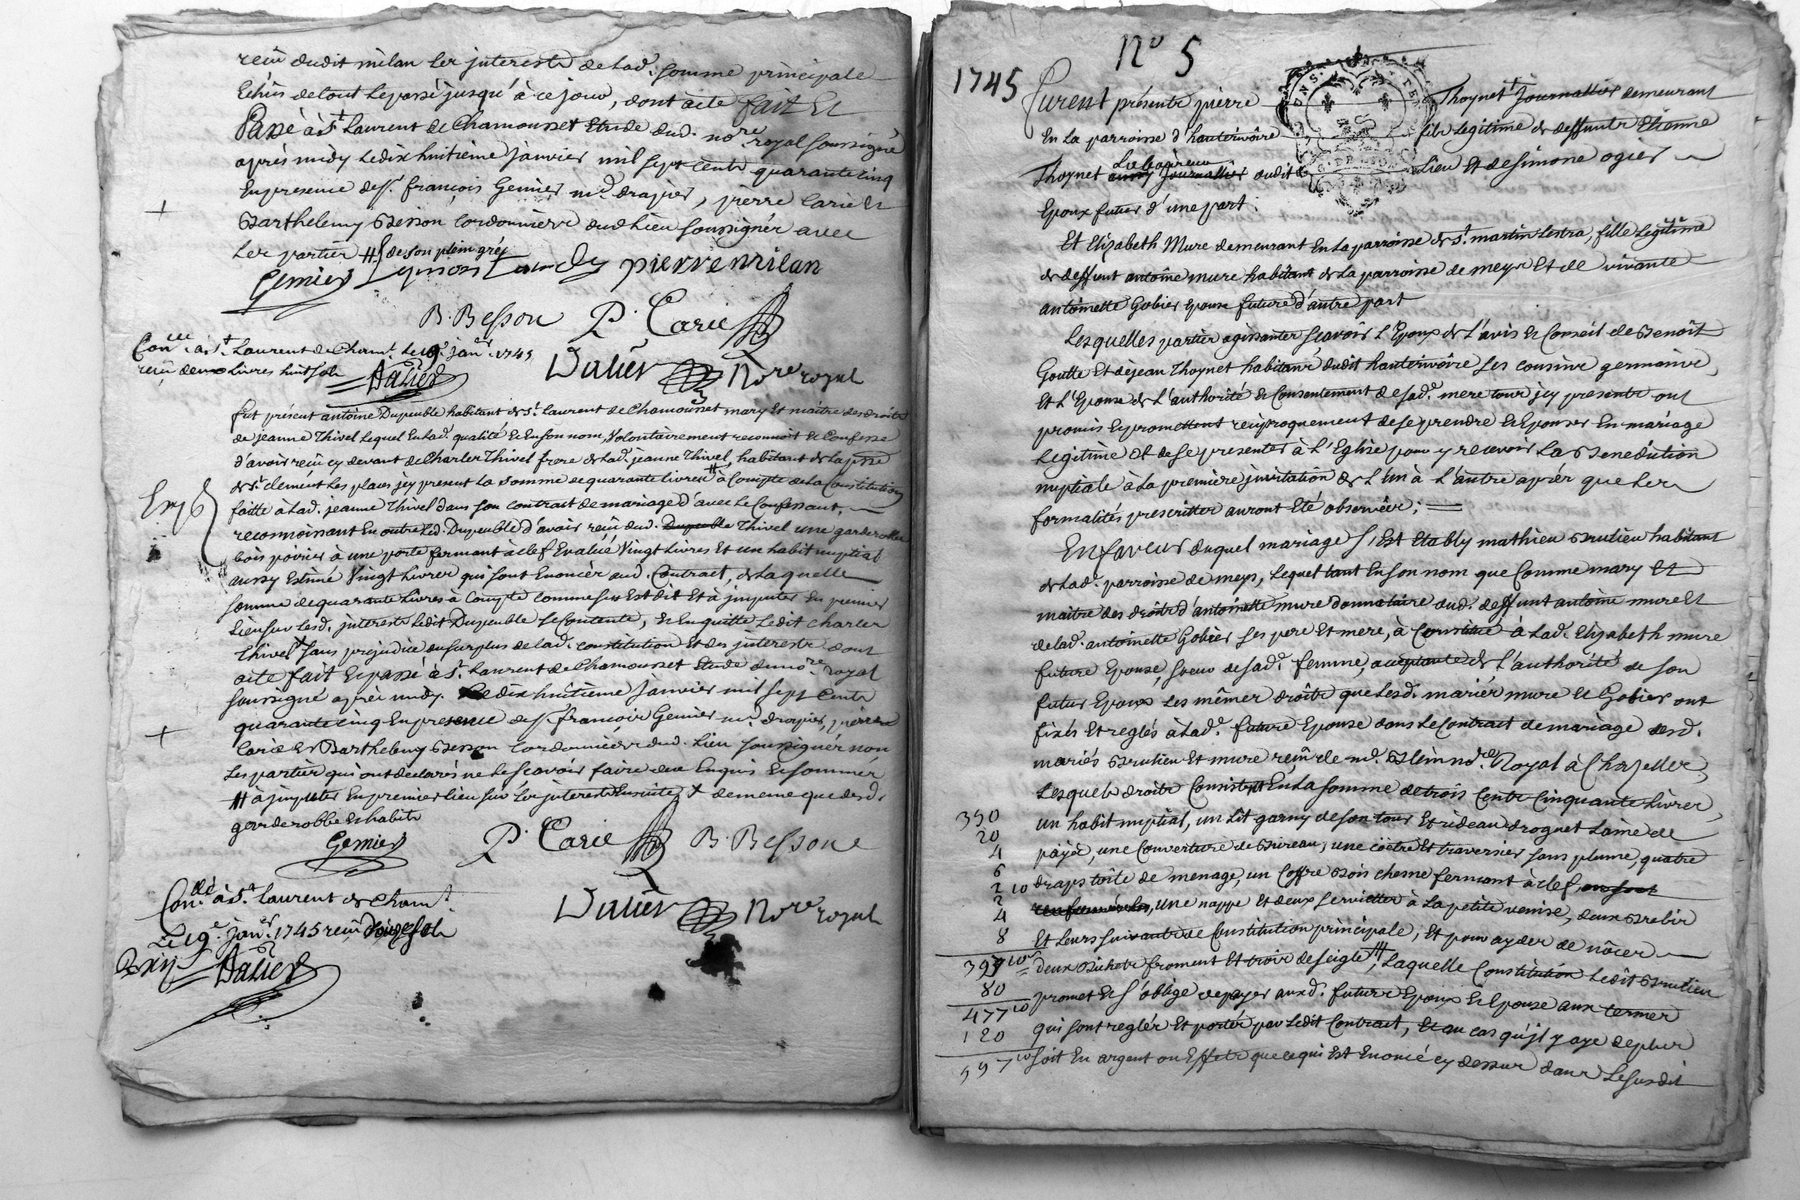 reçu dudit milan les jnterests de lad. somme principale
Echus de tout le passé jusqu'à ce jour, dont acte fait Et
Passé à St Laurent de Chamousset Etude dud. nore royal soussigné
après midy Le dix huitième janvier mil sept cents quarante cinq
En presence de sr. françois Gemier md. drapier, pierre Carie Et
Barthelemy Besson cordonnier dud Lieu soussignés avec
Les parties # de son plein gré
Gemier Pierre milan
B. Besson P. Carie
Conllé à St. Laurent de Cham. Le 19e. janr. 1745
reçu deux Livres huit sols
Dalier Nore royal
fut présent antoine Dupeuble habitant de St. Laurent de Chamousset mary Et maitre des droits
de jeanne Thivel Lequel En lad. qualité Et En son nom, Volontairement reconnoit Et Confesse
d'avoir reçu cy devant de Charles Thivel frere de Lad. jeanne Thivel, habitant de La psse
de St. clement Les places jcy present La somme de quarante livres # à Compte de la Constitution
faitte à Lad. jeanne Thivel dans son contrat de mariage d'avec Le Confessant,
reconnoissant En outre Led. Dupeuble d'avoir reçu dud. Dupeuble Thivel une garderobbe
bois poirier à une porte fermant à clef Evalué Vingt Livres Et un habit nuptial
aussy Estimé Vingt Livres qui sont Enoncés aud. Contract, de Laquelle
somme de quarante Livres à Compte comme sus Est dit Et à jmputer En premier
Lieu sur Lesd. jnterests Ledit Dupeuble se Contente, Et En quitte Ledit Charles
Thivel sans prejudice du surplus de Lad. constitution Et des jnterests dont
acte fait Et passé à St. Laurent de Chamousset Etude du nore royal
soussigné après midy. Le dix huitième janvier mil sept Cents
quarante cinq En presence de sr. françois Gemier md. drapier, pierre
Carie Et Barthelemy Besson cordonnier dud. Lieu soussignés non
Les parties qui ont declarés ne Le scavoir faire de ce Enquis Et sommés
# à jmputer En premier lieu sur Les jnterests Ensuite de meme que desd.
garderobbe Et habits
Gemier P. Carie B. Besson
Conllé à St. Laurent de Cham.
Le 19e. janr. 1745 reçu douze sols
Dalier Nore royal
No 5
1745 Furent présents pierre Thoynet journallier demeurant
En La parroisse d'hauterivoire fils Legitime de deffunts Etienne
Laboureur
Thoynet aussy journallier dudit Lieu Et de simone ogier
Epoux futur d'une part.
Et Elizabeth Mure demeurant En La parroisse de St. martin Lestra, fille Legitime
de deffunt antoine mure habitant de La parroisse de meys Et de vivante
antoinette Gobier Epouse future d'autre part
Lesquelles parties agissantes scavoir L'Epoux de L'avis Et Conseil de Benoît
Goutte Et de jean Thoynet habitans dudit hauterivoire ses cousins germains,
Et L'Epouse de L'authorité Et Consentement de sad. mere tous jcy presents ont
promis Et promettent reciproquement de se prendre Et Epouser En mariage
Legitime Et de se presenter à L'Eglise pour y recevoir La Benediction
nuptiale à La première jnvitation de L'un à L'autre après que Les
formalités prescrittes auront Eté observées;
En faveur duquel mariage s'Est Etably mathieu Brulieu habitant
de Lad. parroisse de meys, Lequel tant En son nom que Comme mary Et
maitre des droits d'antoinette mure donnataire dud. deffunt antoine mure Et
de Lad. antoinette Gobier ses pere Et mere, à Constitué à Lad. Elizabeth mure
future Epouse, soeur de sad. femme, acceptante de L'authorité de son
futur Epoux Les mêmes droits que Lesd. mariés mure Et Gobier ont
fixés Et reglés à Lad. future Epouse dans Le Contract de mariage desd.
mariés Brulieu Et mure reçu de me. Blein nore Royal à Chazelles,
Lesquels droits Consistent En La somme de trois Cents Cinquante Livres,
350 un habit nuptial, un Lit garny de son tour Et rideau droguet Laine de
20 payés, une Couverture de Bureau, une coëtre Et traversier sans plume, quatre
4
6 draps toile de menage, un Coffre Bois chesne fermant à clef,
2 10
2 une nappe Et deux serviettes à La petite venise, deux Brebis
4
8 Et Leurs suivants de Constitution principale, Et pour ayder de nôces
399 10 deux Bichets froment Et trois de seigle #; Laquelle Constitution Ledit Brulieu
80 promet Et s'oblige de payer auxd. futurs Epoux Et Epouse aux termes
477 10
120 qui sont reglés Et portés par Ledit Contract, Et au cas qu'jl y aye de plus
597 10 soit En argent ou Effets que ce qui Est Enoncé cy dessus dans Le susdit